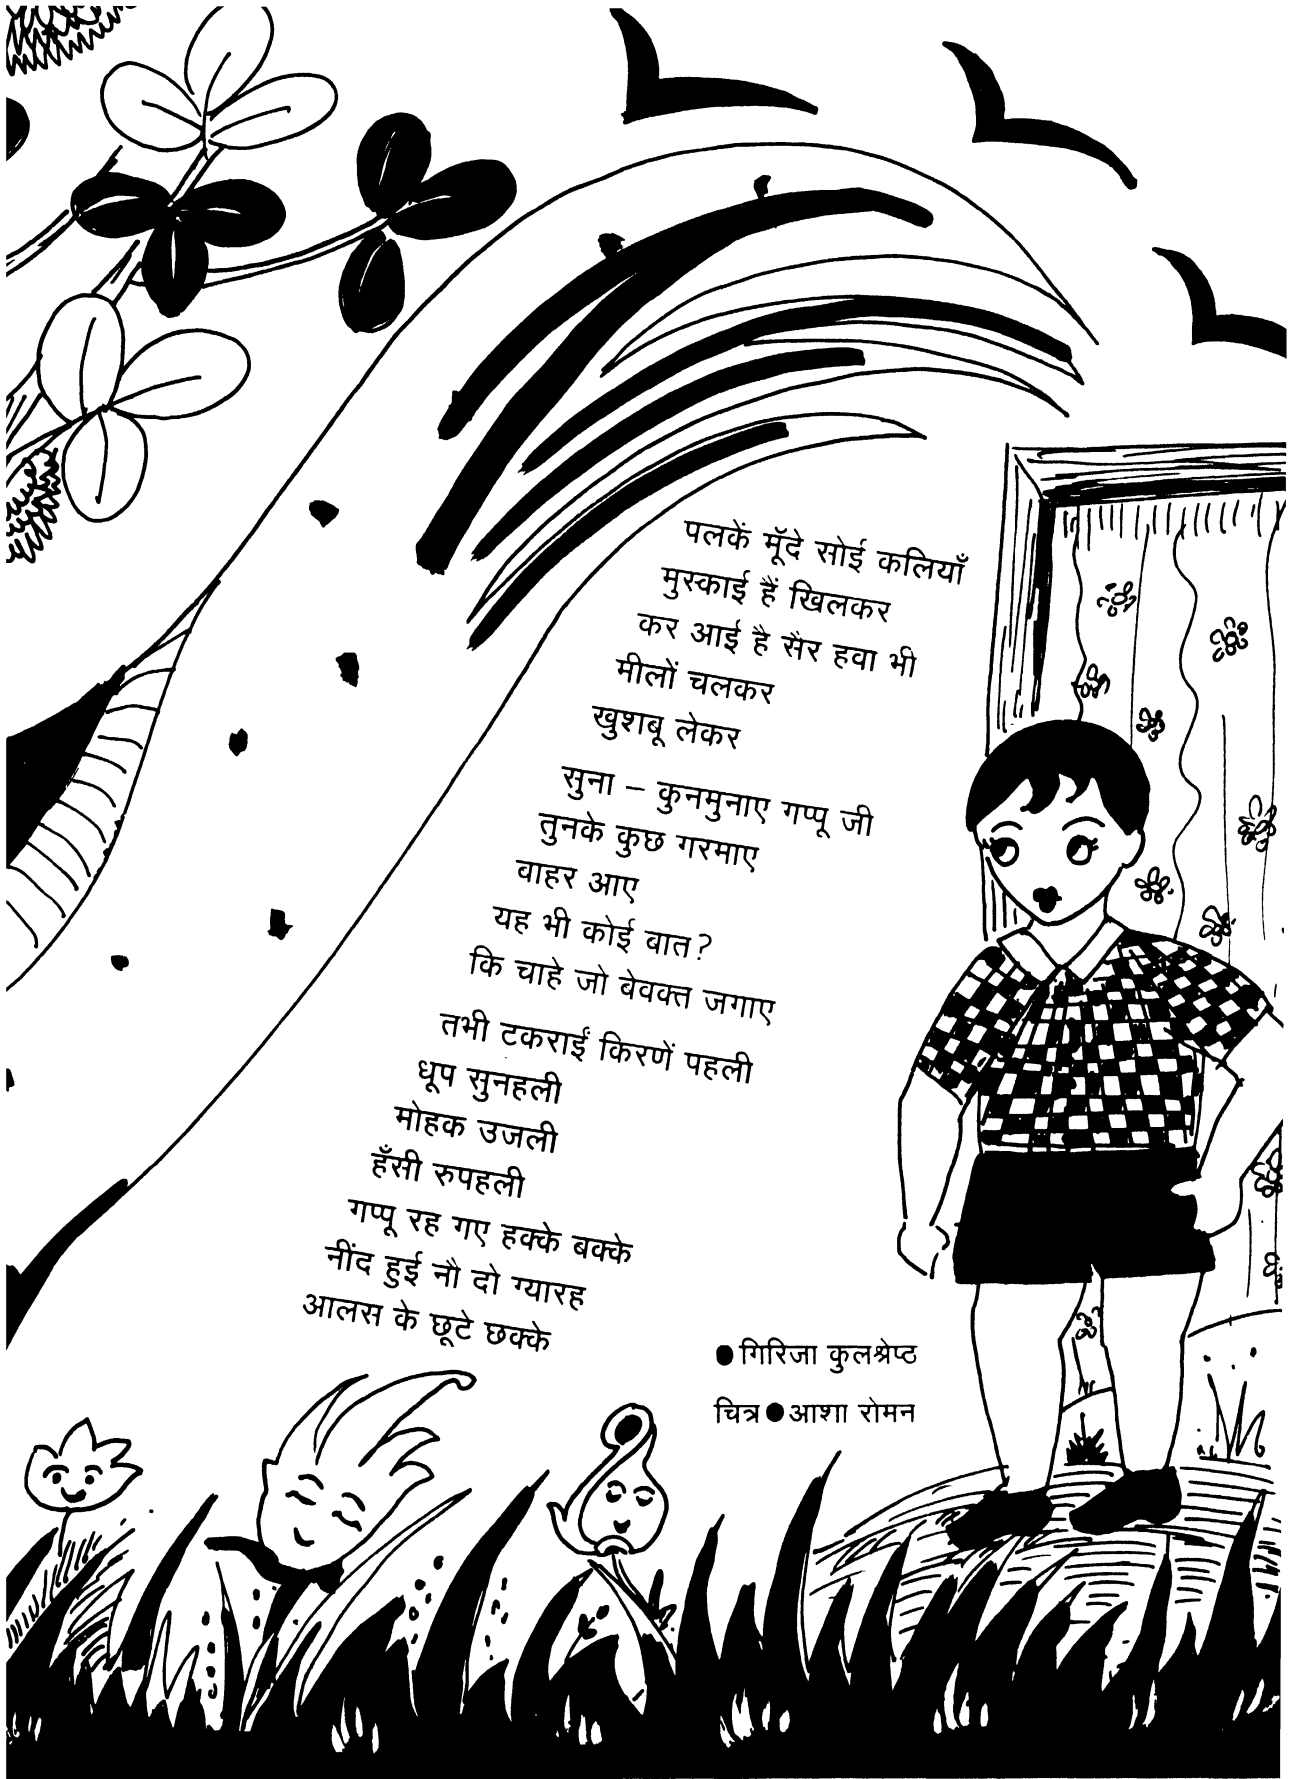 पलकें मूँदे सोई कलियाँ
मुस्काई हैं खिलकर
कर आई है सैर हवा भी
मीलों चलकर
खुशबू लेकर
सुना – कुनमुनाए गप्पू जी
तुनके कुछ गरमाए
वाहर आए
यह भी कोई बात?
कि चाहे जो बेवक्त जगाए
तभी टकराईं किरणें पहली
धूप सुनहली
मोहक उजली
हँसी रुपहली
गप्पू रह गए हक्के बक्के
नींद हुई नौ दो ग्यारह
आलस के छूटे छक्के
● गिरिजा कुलश्रेष्ठ
चित्र ● आशा रोमन